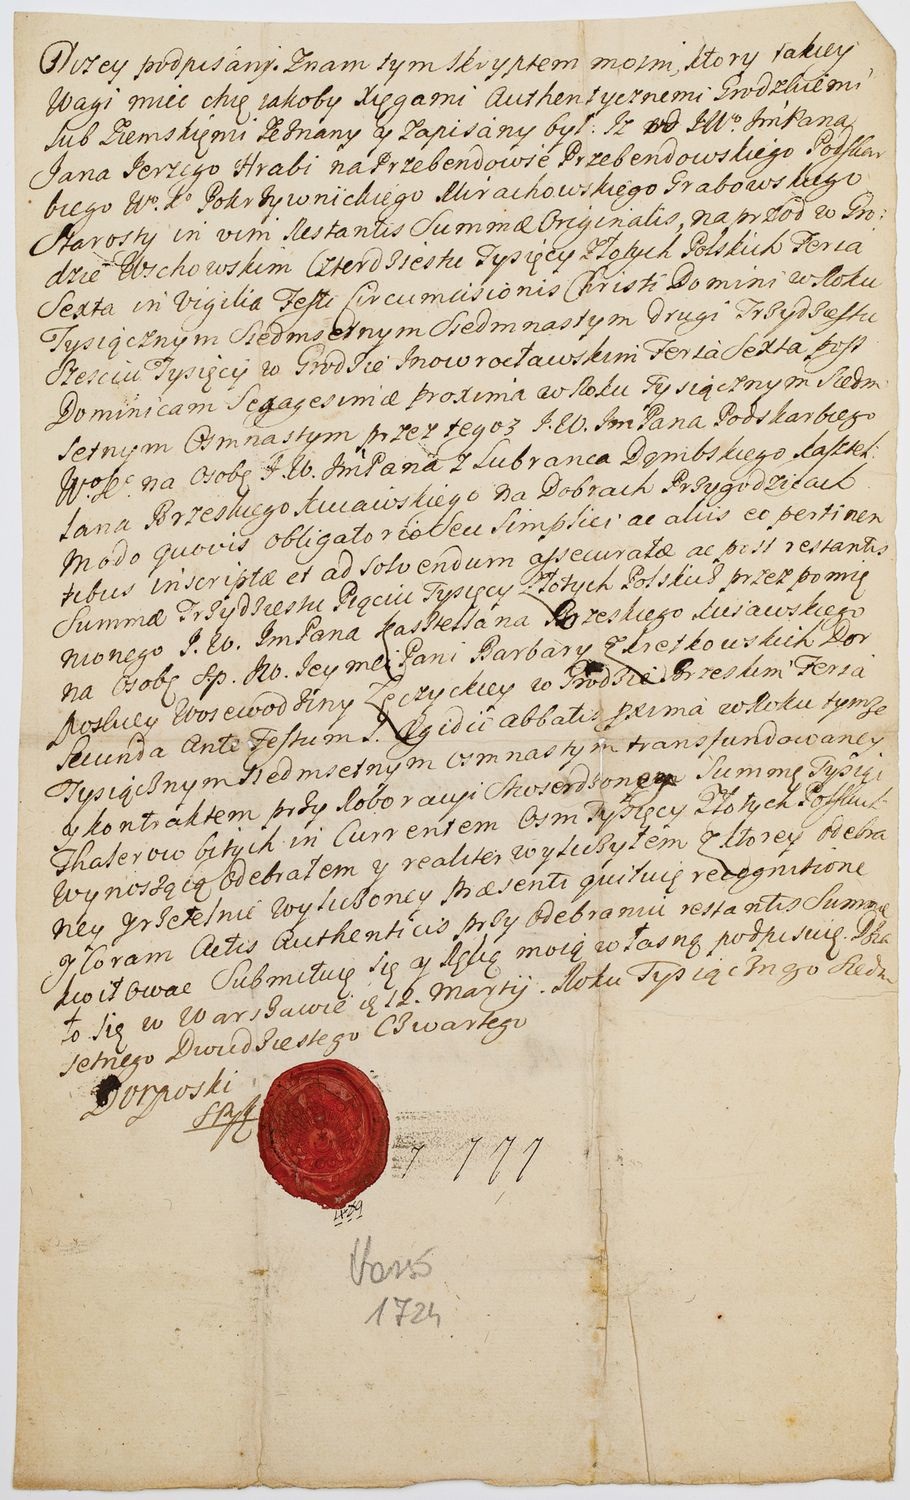 Niżey podpisány. Znam tym skryptem moim, ktory takiey
Wagi mieć chcę iakoby Xięgami Authentycznemi Grodzkiemi
lub Ziemskięmi zeznany y zapisány był: Iz od J.Wo. JmPana
Jana Jerzego Hrabi na Przebendowie Przebendowskiego Podskar
biego Wo. Ko Pokrzywnickiego Mirachowskiego Grabowskiego
Starosty in vim Restantis Summæ Originalis, na przod w Gro:
dzie Wschowskim Czterdziestu Tysięcy Złotych Polskich Feria
Sexta in Vigilia Festi Circumcisionis Christi Domini w Roku
Tysiącznym Siedmsetnym Siedmnastym drugi Trzydziestu
Sześciu Tysięcy w Grodzie Inowrocławskim Feria Sexta post
Dominicam Sexagesimæ proxima w Roku Tysiącznym Siedm
setnym Osmnastym przez tegoz J.W. JmPana Podskarbiego
na Osobę J.W. JmPana z Lubranca Dąmbskiego Kasztel:
lana Brzeskiego Kuiawskiego na Dobrach Przygodzicach
modo quovis obligatorio Seu Simplici ac aliis eo pertinen
tibus inscriptæ et ad solvendum assecuratæ ac post restantis
Summæ Trzydziestu Pięciu Tysięcy Złotych Polskich przez pomię
nionego J.W. JmPana Kasztellana Brzeskiego Kuiawskiego
na Osobę Sp. JW. Jeymci Pani Barbary z Kretkowskich Dor
poskiey Woiewodziny Łęczyckiey w Grodzie Brzeskim Feria
Secunda Ante Festum S. Ægidii abbatis proxima w Roku tymze
Tysiącznym Siedmsetnym Osmnastym transfundowaney
y kontraktem przy Roboracyi Stwierdzoney Summę Tysiąc
Thalerow bitych in Currentem Osm Tysięcy Złotych Polskich
wynoszącą Odebrałem y realiter wyliczyłem z ktorey odebra
ney y rzetelnie wyliczoney præsenti quituię recognitione
y Coram Actis Authenticis przy Odebraniu restantis Summæ
kwitowac Submittuię się y Ręką moią własną podpisuię. Dzia
ło się w Warszawie d 12. Martij. Roku Tysiącznego Siedm
setnego Dwudziestego Czwartego
Dorposki
7 7 7 7
1724